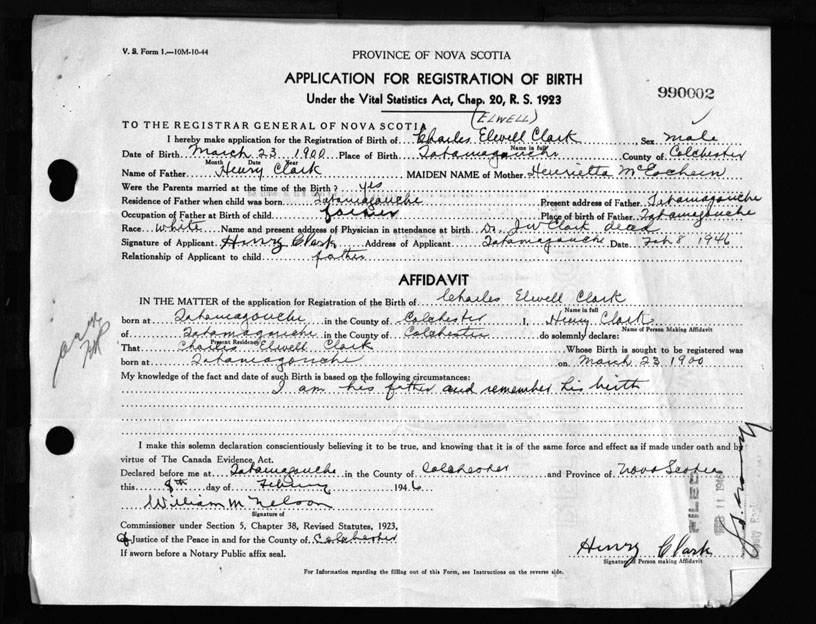 V. S. Form 1.—10M-10-44
PROVINCE OF NOVA SCOTIA
APPLICATION FOR REGISTRATION OF BIRTH
990002
Under the Vital Statistics Act, Chap. 20, R. S. 1923
(ELWELL)
TO THE REGISTRAR GENERAL OF NOVA SCOTIA
I hereby make application for the Registration of Birth of Charles Elwell Clark Sex male
Name in full
Date of Birth March 23 1900 Place of Birth Tatamagouche County of Colchester
Month Date Year
Name of Father Henry Clark MAIDEN NAME of Mother Henrietta McEachern
Were the Parents married at the time of the Birth? yes
Residence of Father when child was born Tatamagouche Present address of Father Tatamagouche
Occupation of Father at Birth of child Place of birth of Father Tatamagouche
Race white Name and present address of Physician in attendance at birth Dr. J W Clark dead
Signature of Applicant Henry Clark Address of Applicant Tatamagouche Date Feb 8 1946
Relationship of Applicant to child father
AFFIDAVIT
IN THE MATTER of the application for Registration of the Birth of Charles Elwell Clark
Name in full
born at Tatamagouche in the County of Colchester I, Henry Clark
Name of Person Making Affidavit
of Tatamagouche in the County of Colchester do solemnly declare:
Present Residence
That Charles Elwell Clark Whose Birth is sought to be registered was
born at Tatamagouche on March 23 1900
My knowledge of the fact and date of such Birth is based on the following circumstances:
I am his father and remember his birth
I make this solemn declaration conscientiously believing it to be true, and knowing that it is of the same force and effect as if made under oath and by
virtue of The Canada Evidence Act.
Declared before me at Tatamagouche in the County of Colchester and Province of Nova Scotia
this 8th day of February 1946
William M Nelson
Signature of
Commissioner under Section 5, Chapter 38, Revised Statutes, 1923,
of Justice of the Peace in and for the County of Colchester
If sworn before a Notary Public affix seal.
Henry Clark
Signature of Person making Affidavit
For Information regarding the filling out of this Form, see Instructions on the reverse side.
FILED
FEB 11 1946